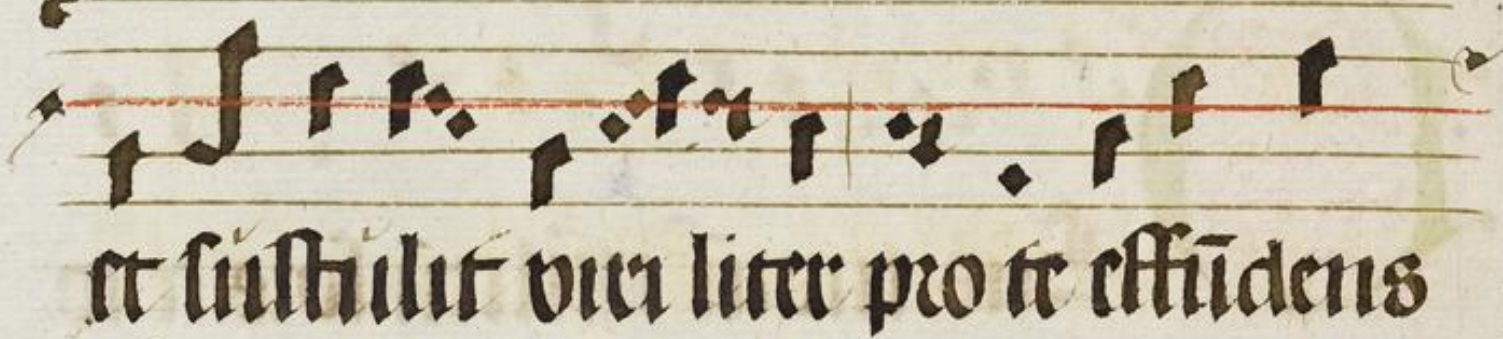 et sustulit viri liter pro te effūdens